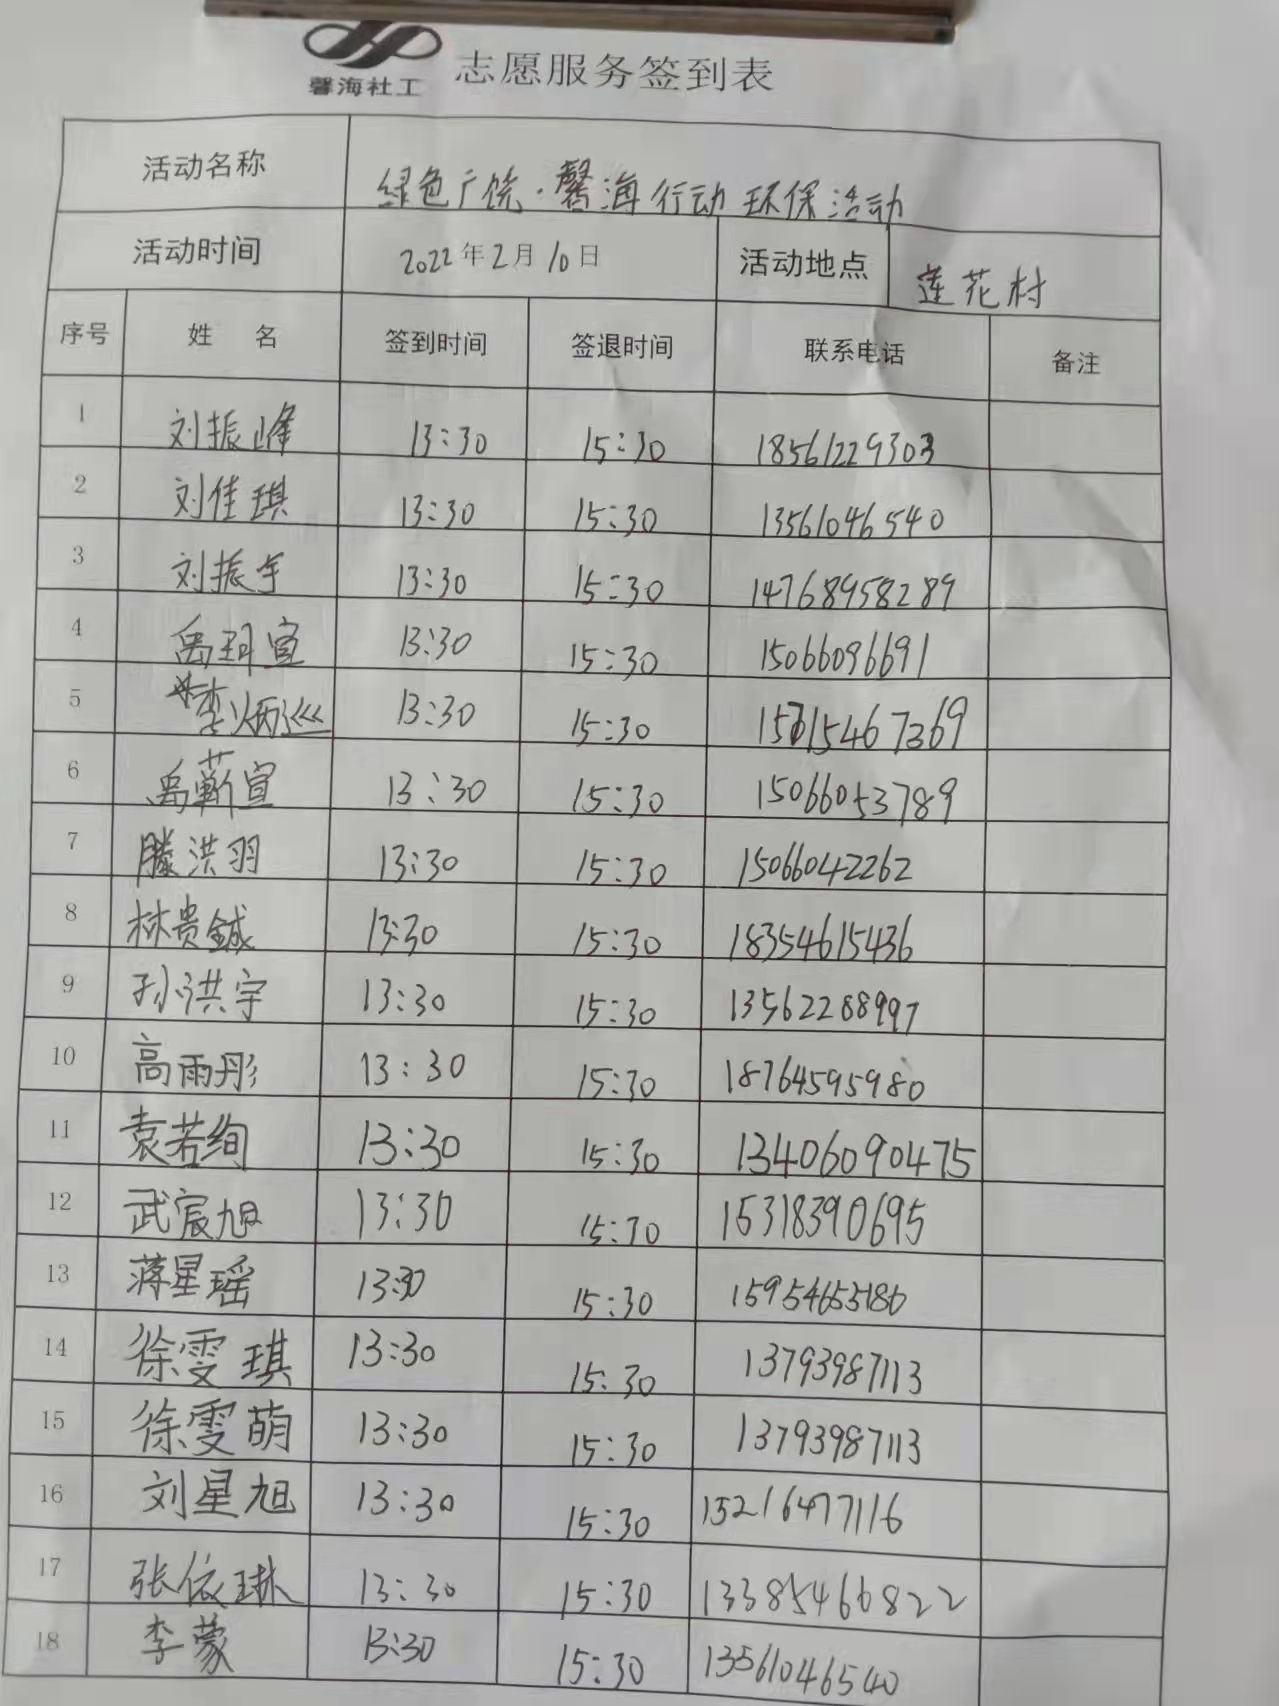 馨海社工 志愿服务签到表
活动名称 绿色广饶·馨海行动环保活动
活动时间 2022年2月10日 活动地点 莲花村
序号 姓 名 签到时间 签退时间 联系电话 备注
1 刘振峰 13:30 15:30 18561229303
2 刘佳琪 13:30 15:30 13561046540
3 刘振宇 13:30 15:30 14768958289
4 禹珂宣 13:30 15:30 15066096691
5 李炳巡 13:30 15:30
6 禹蕲宣 13:30 15:30 15066053789
7 滕洪羽 13:30 15:30 15066042262
8 林贵鋮 13:30 15:30 18354615436
9 孙洪宇 13:30 15:30 13562288997
10 高雨彤 13:30 15:30 18764595980
11 袁若绚 13:30 15:30 13406090475
12 武宸旭 13:30 15:30 15318390695
13 蒋星瑶 13:30 15:30 15954653186
14 徐雯琪 13:30 15:30 13793987113
15 徐雯萌 13:30 15:30 13793987113
16 刘星旭 13:30 15:30 15216477116
17 张依琳 13:30 15:30 13385466822
18 李蒙 13:30 15:30 13561046540